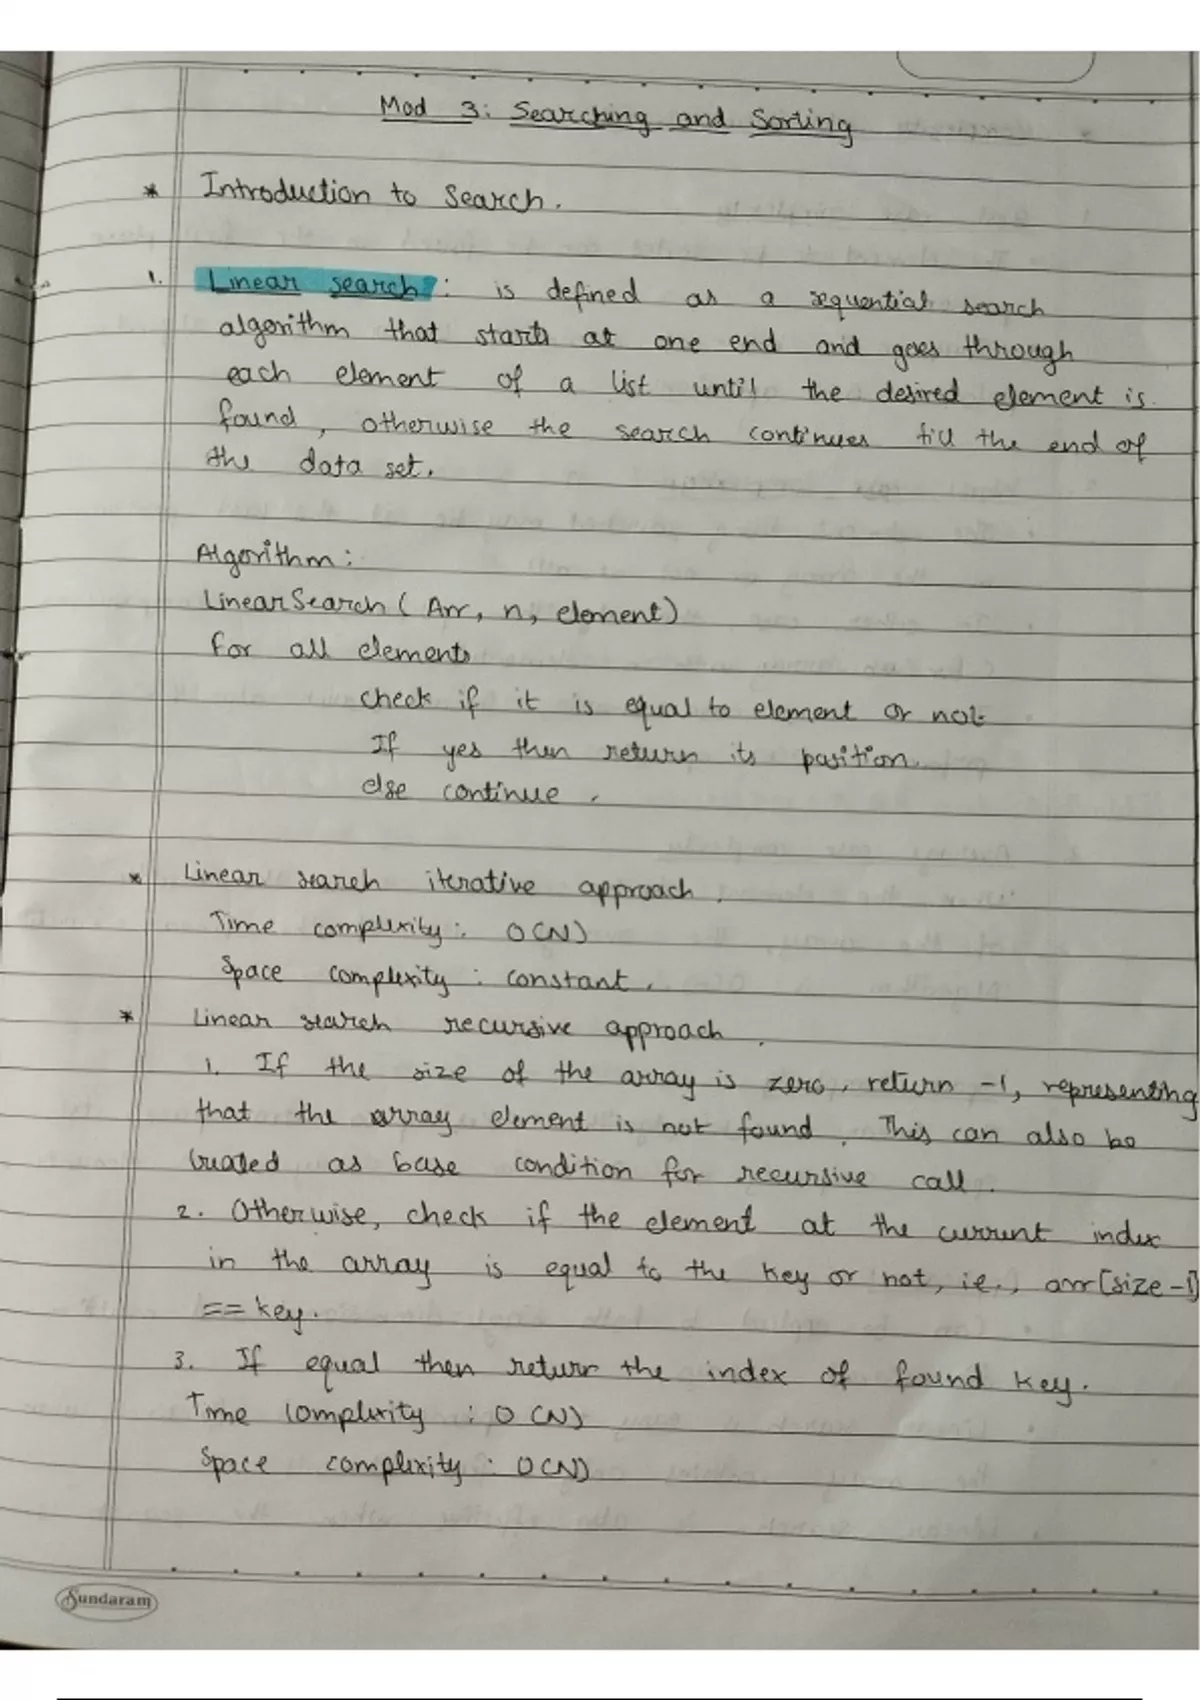 Mod 3: Searching and Sorting
* Introduction to Search.
1. Linear search: is defined as a sequential search
algorithm that starts at one end and goes through
each element of a list until the desired element is
found, otherwise the search continues till the end of
the data set.
Algorithm:
LinearSearch ( Arr, n, element)
for all elements
check if it is equal to element or not
If yes then return its position.
else continue.
* Linear search iterative approach.
Time complexity: O(N)
Space complexity: constant.
* Linear search recursive approach.
1. If the size of the array is zero, return -1, representing
that the array element is not found. This can also be
treated as base condition for recursive call.
2. Otherwise, check if the element at the current index
in the array is equal to the key or not, i.e., arr[size-1]
== key.
3. If equal then return the index of found key.
Time complexity : O(N)
Space complexity : O(N)
Sundaram